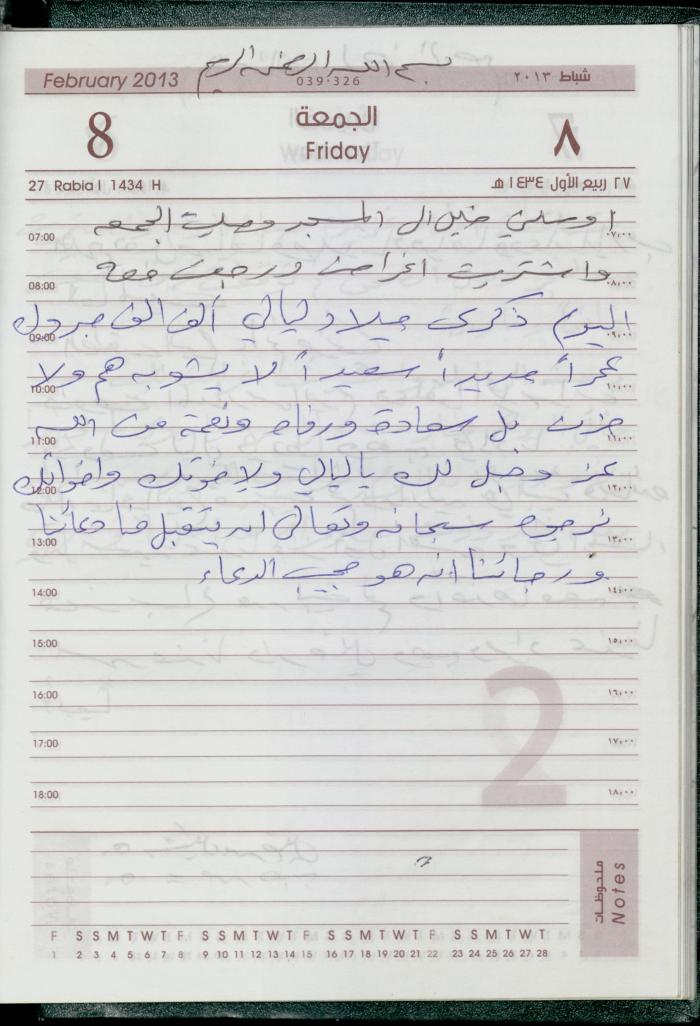 بسم الله الرحمن الرحيم
February 2013 039-326 شباط ٢٠١٣
8 الجمعة ٨
Friday
27 Rabia I 1434 H ٢٧ ربيع الأول ١٤٣٤ هـ
اوصلني خليل الى المسجد وصليت الجمعه
07:00 ٠٧،٠٠
واشتريت اغراض ورجعت معه
08:00 ٠٨،٠٠
اليوم ذكرى ميلاد ليالي ألف الف مبروك
09:00 ٠٩،٠٠
عمراً مديداً سعيداً لا يشوبه هم ولا
10:00 ١٠،٠٠
حزن بل سعادة ورفاه ونعمة من الله
11:00 ١١،٠٠
عز وجل لك يا ليالي ولاخوتك واخواتك
12:00 ١٢،٠٠
نرجوه سبحانه وتعالى ان يتقبل منا دعائنا
13:00 ١٣،٠٠
ورجائنا انه هو مجيب الدعاء
14:00 ١٤،٠٠
15:00 ١٥،٠٠
16:00 ١٦،٠٠
17:00 ١٧،٠٠
18:00 ١٨،٠٠
2
ملحوظات
Notes
F S S M T W T F S S M T W T F S S M T W T F S S M T W T
1 2 3 4 5 6 7 8 9 10 11 12 13 14 15 16 17 18 19 20 21 22 23 24 25 26 27 28